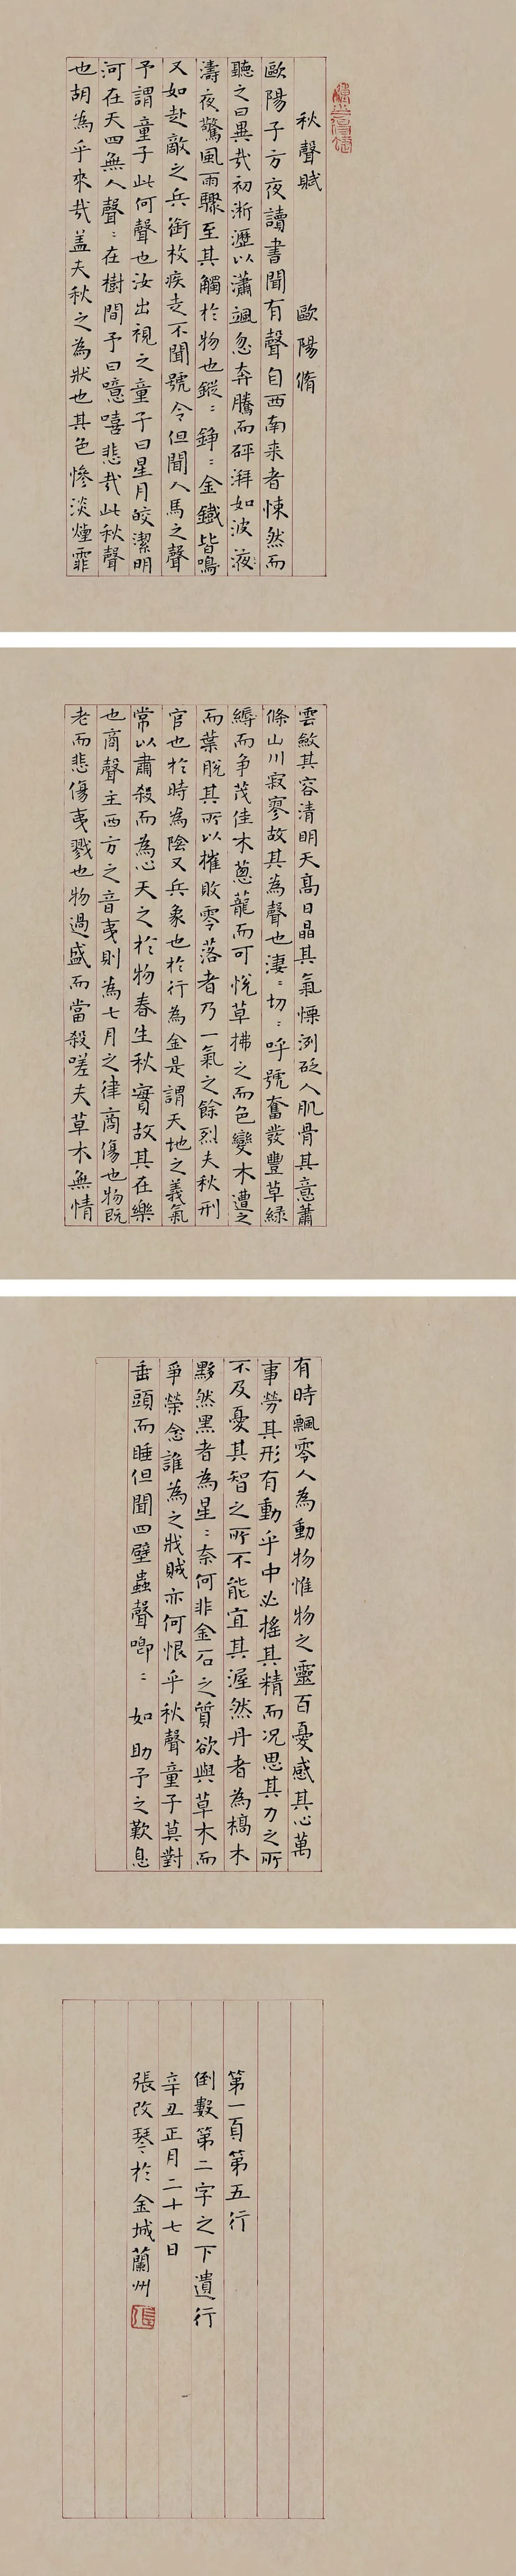 秋聲賦 歐陽脩
歐陽子方夜讀書聞有聲自西南来者悚然而
聽之曰異哉初淅瀝以瀟颯忽奔騰而砰湃如波
濤夜驚風雨驟至其觸於物也鏦:錚:金鐵皆鳴
又如赴敵之兵銜枚疾走不聞號令但聞人馬之聲
予謂童子此何聲也汝出視之童子曰星月皎潔明
河在天四無人聲:在樹間予曰噫嘻悲哉此秋聲
也胡為乎來哉盖夫秋之為狀也其色慘淡煙霏
雲斂其容清明天高日晶其氣慄洌砭人肌骨其意蕭
條山川寂寥故其為聲也淒:切:呼號奮發豐草緑
縟而争茂佳木蔥蘢而可悅草拂之而色變木遭之
而葉脫其所以摧敗零落者乃一氣之餘烈夫秋刑
官也於時為陰又兵象也於行為金是謂天地之義氣
常以肅殺而為心天之於物春生秋實故其在樂
也商聲主西方之音夷則為七月之律商傷也物既
老而悲傷夷戮也物過盛而當殺嗟夫草木無情
有時飄零人為動物惟物之靈百憂感其心萬
事勞其形有動乎中必搖其精而況思其力之所
不及憂其智之所不能宜其渥然丹者為槁木
黟然黑者為星:奈何非金石之質欲與草木而
爭榮念誰為之戕賊亦何恨乎秋聲童子莫對
垂頭而睡但聞四壁蟲聲唧:如助予之歎息
第一頁第五行
倒數第二字之下遺行
辛丑正月二十七日
張改琴於金城蘭州